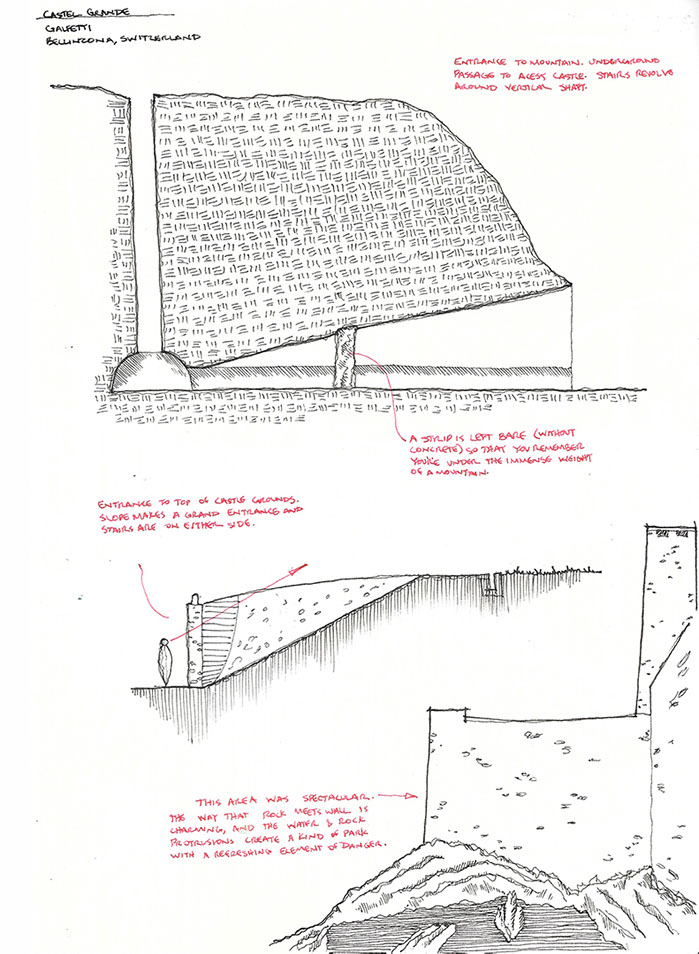 CASTEL GRANDE
GALFETTI
BELLINZONA, SWITZERLAND
ENTRANCE TO MOUNTAIN. UNDERGROUND
PASSAGE TO ACESS CASTLE. STAIRS REVOLVE
AROUND VERTICAL SHAFT.
A STRIP IS LEFT BARE (WITHOUT
CONCRETE) SO THAT YOU REMEMBER
YOU'RE UNDER THE IMMENSE WEIGHT
OF A MOUNTAIN.
ENTRANCE TO TOP OF CASTLE GROUNDS.
SLOPE MAKES A GRAND ENTRANCE AND
STAIRS ARE ON EITHER SIDE.
THIS AREA WAS SPECTACULAR.
THE WAY THAT ROCK MEETS WALL IS
CHARMING, AND THE WATER & ROCK
PROTRUSIONS CREATE A KIND OF PARK
WITH A REFRESHING ELEMENT OF DANGER.